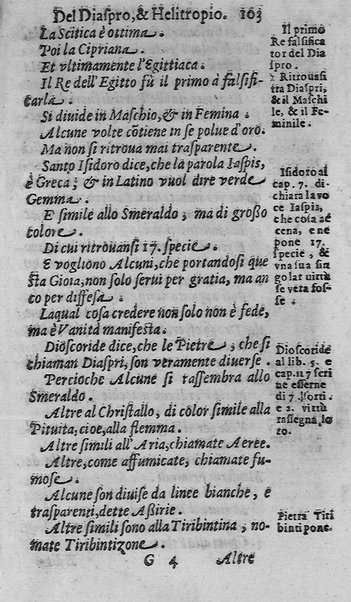 Del Diaspro, & Helitropio. 163
La Scitica è ottima.
Poi la Cipriana.
Et vltimamente l'Egittiaca.
Il Re dell'Egitto fù il primo à falsifi-
carla.
Si diuide in Maschio, & in Femina.
Alcune volte cõtiene in se polue d'oro.
Ma non si ritroua mai trasparente.
Santo Isidoro dice, che la parola Iaspis,
è Greca; & in Latino vuol dire verde
Gemma.
E simile allo Smeraldo; ma di großo
colore.
Di cui ritrouansi 17. specie.
E vogliono Alcuni, che portandosi que
sta Gioia, non solo serui per gratia, ma an
co per diffesa.
Laqual cosa credere non solo non è fede,
ma è Vanità manifesta.
Dioscoride dice, che le Pietre, che si
chiaman Diaspri, son veramente diuerse.
Percioche Alcune si rassembra allo
Smeraldo.
Altre al Christallo, di color simile alla
Pituita, cioe, alla flemma.
Altre simili all'Aria, chiamate Aeree.
Altre, come affumicate, chiamate fu-
mose.
Alcune son diuise da linee bianche, e
trasparenti, dette Aßirie.
Altre simili sono alla Tiribintina, no-
mate Tiribintizone.
G 4 Altre
Il primo
Re falsifica
tor del Dia
spro.
2 Ritrouasi
tra Diaspri,
& il Maschi
le, & il Fe-
minile.
Isidoro al
cap. 7. di-
chiara la vo
ce Iaspis,
che cosa ac
cena, e ne
pone 17.
specie, &
vna sua sin
golar uirtù
se vera fos-
se.
Dioscoride
al lib. 5. e
cap. 117 scri
ue esserne
di 7. sorti.
e 2. virtù
rassegna lo
ro.
Pietra Tiri
binti pone.